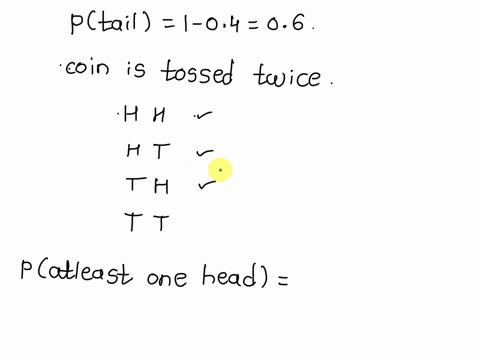 P(tail) = 1-0.4 = 0.6.
coin is tossed twice.
H H ✓
H T ✓
T H ✓
T T
P(atleast one head) =